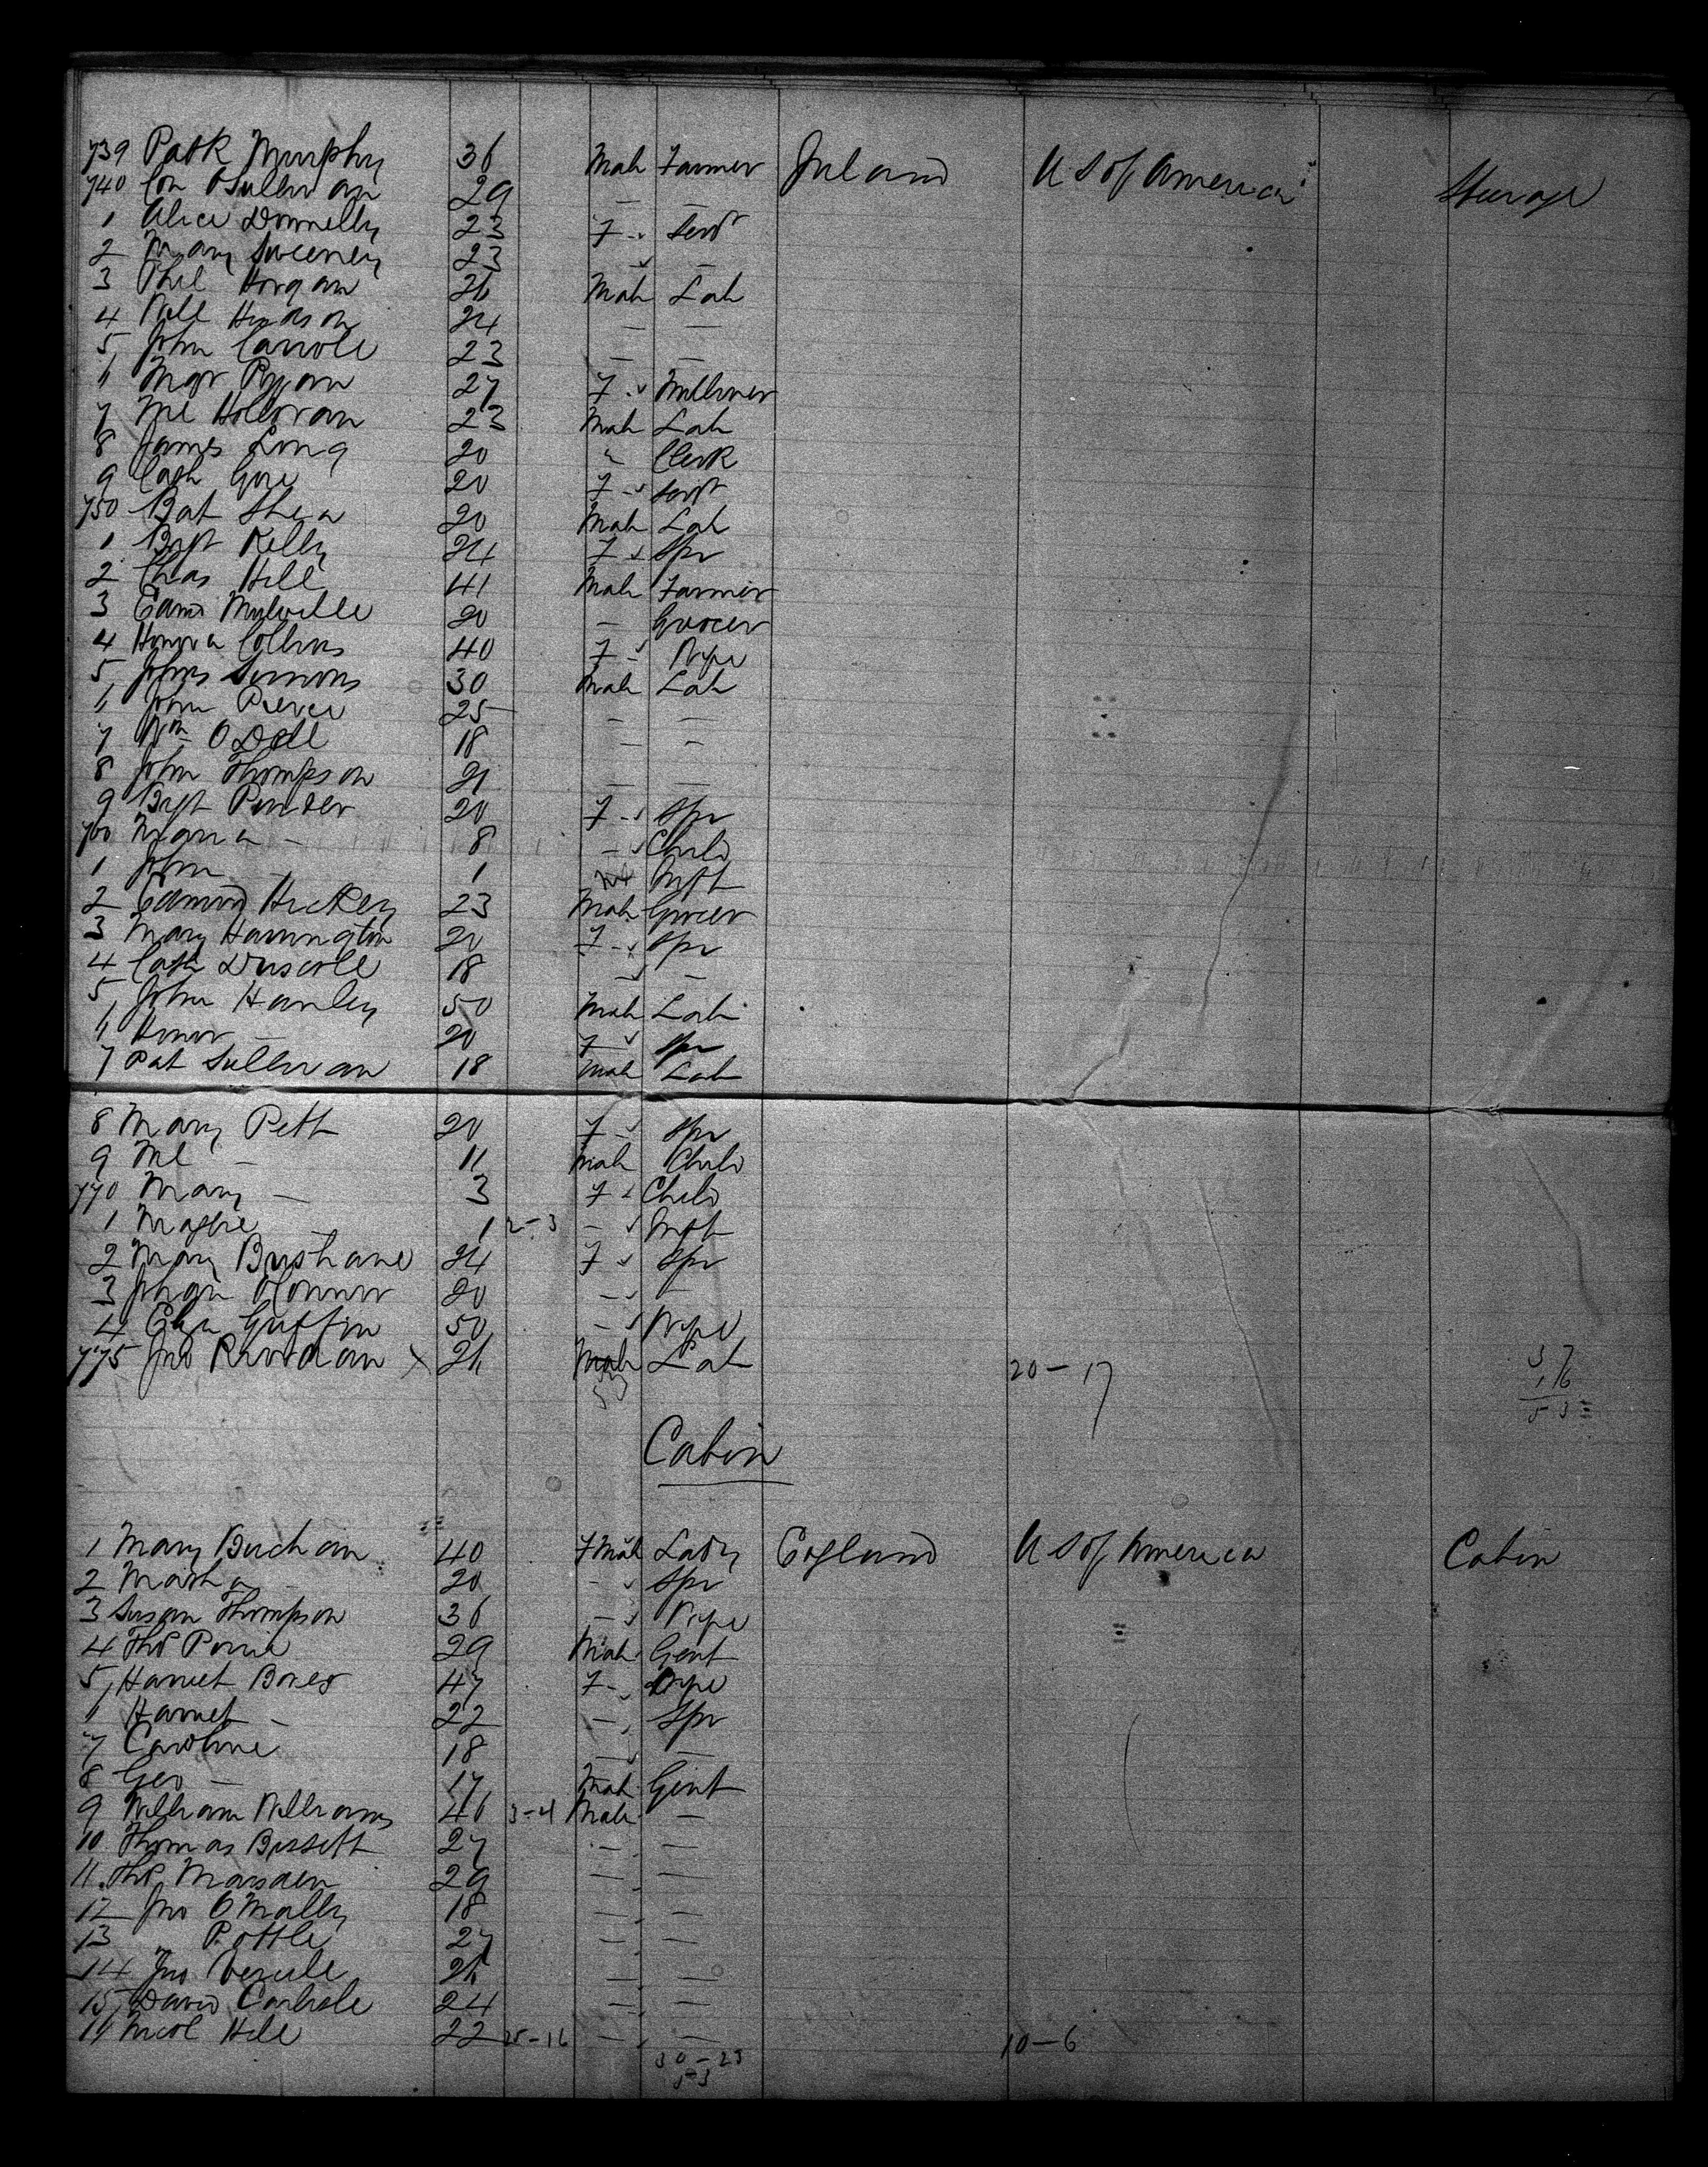 739 Patk Murphy 36 Male Farmer Ireland U S of America Steerage
740 Con OSullivan 29 — —
1 Alice Donnelly 23 F " Servt
2 Mary Sweeney 23 " —
3 Phil Horgan 26 Male Lab
4 Will Hudson 24 — —
5 John Carroll 23 — —
6 Mgt Ryan 27 F " Milliner
7 Ml Holloran 23 Male Lab
8 James Long 20 " Clerk
9 Cath Gore 20 F " Servt
750 Bat Shea 20 Male Lab
1 Bgt Kelly 24 F " Spr
2 Chas Hill 41 Male Farmer
3 Edmd Mulville 20 — Grocer
4 Honora Collins 40 F " Wife
5 Johns Simons 30 Male Lab
6 John Pierce 25 — —
7 Wm ODell 18 — —
8 John Thompson 21 — —
9 Bgt Pinder 20 F " Spr
760 Maria — 8 — " Child
1 John — 1 Inft
2 Edmond Hickey 23 Male Grocer
3 Mary Harrington 20 F " Spr
4 Cath Driscoll 18 — —
5 John Hanley 50 Male Lab
6 Honor — 20 F " Spr
7 Pat Sullivan 18 Male Lab
8 Mary Pett 20 F " Spr
9 Ml — 11 Male Child
770 Mary — 3 F " Child
1 Maggie — 1 2-3 — " Inft
2 Mary Brishane 24 F " Spr
3 OConnor 20 — " —
4 Griffin 50 — " Wife
775 Jno Riordan X 26 Male Lab 20-17 37
53 16
53
Cabin
1 Mary Buchan 40 FMale Lady England U S of America Cabin
2 Martha — 20 — " Spr
3 Susan Thompson 36 — " Wife
4 Thos 29 Male Gent
5 Harriet Bones 47 F " Wife
6 Harriet — 22 — " Spr
7 Caroline 18 — " —
8 Geo — 17 Male Gent
9 William Williams 46 3-4 Male —
10 Thomas Bissett 27 — —
11 Thos Marsden 29 — —
12 Jno OMally 18 — —
13 " Pottle 27 — —
14 Jno 26 — —
15 David Carlisle 24 — —
16 Nicol Hill 22 25-16 — — 10-6
30-23
53